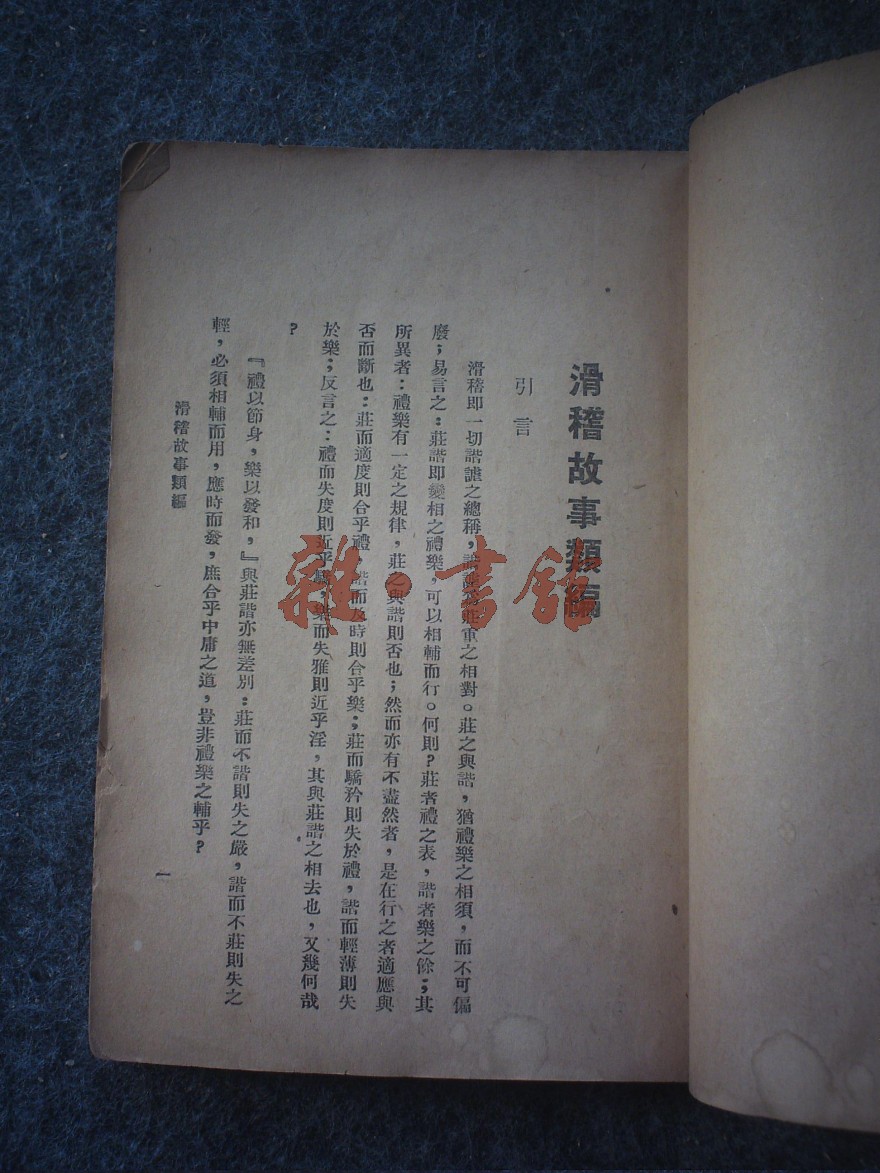 滑稽故事類編
引言
滑稽即一切諧謔之總稱，諧謔爲莊重之相對。莊之與諧，猶禮樂之相須，而不可偏
廢；易言之：莊諧即變相之禮樂，可以相輔而行。何則？莊者禮之表，諧者樂之餘；其
所異者：禮樂有一定之規律，莊之與諧則否也；然而亦有不盡然者，是在行之者適應與
否而斷也：莊而適度則合乎禮，諧而及時則合乎樂；莊而驕矜則失於禮，諧而輕薄則失
於樂；反言之：禮而失度則近乎驕，樂而失雅則近乎淫，其與莊諧之相去也，又幾何哉
？
『禮以節身，樂以發和，』與莊諧亦無差別：莊而不諧則失之嚴，諧而不莊則失之
輕，必須相輔而用，應時而發，庶合乎中庸之道，豈非禮樂之輔乎？
滑稽故事類編
一
雜·書館